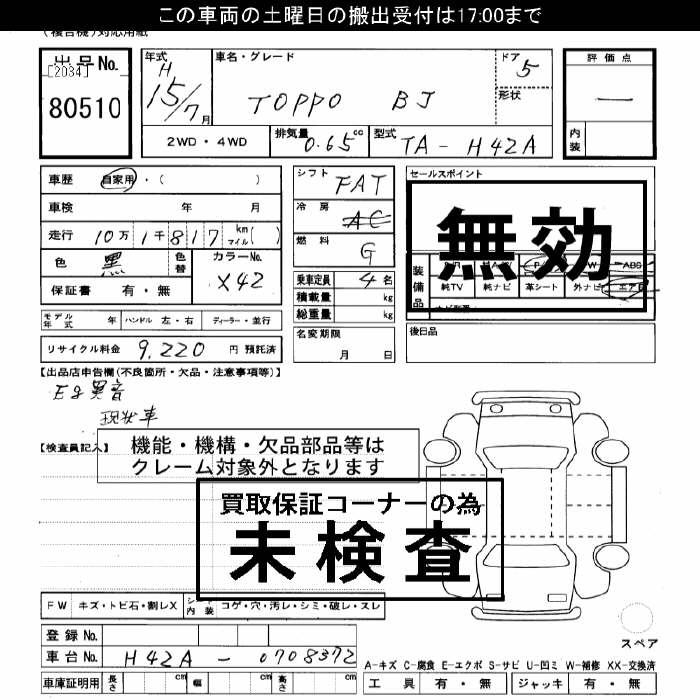 この車両の土曜日の搬出受付は17:00まで
(複合機)対応用紙
出品No.
[2034]
80510
年式
H
15/7月
車名・グレード
TOPPO BJ
ドア
5
形状
評価点
一
内装
2WD・4WD
排気量
0.65cc
型式
TA-H42A
車歴 自家用・( )
車検 年 月
走行 10万1千817 km マイル( )
色 黒
色替
カラーNo.
X42
保証書 有・無
シフト
FAT
冷房
AC
燃料
G
乗車定員 4名
積載量 kg
総重量 kg
セールスポイント
無効
装備品
ABS
純TV 純ナビ 革シート 外ナビ エアB
モデル年式 年 ハンドル 左・右 ディーラー・並行
名変期限
月 日
後日品
リサイクル料金 9,220 円 預託済
【出品店申告欄(不良箇所・欠品・注意事項等)】
Eg異音
現状車
【検査員記入】
機能・機構・欠品部品等は
クレーム対象外となります
買取保証コーナーの為
未検査
FW キズ・トビ石・割レX
シート内装 コゲ・穴・汚レ・シミ・破レ・スレ
登録No.
車台No. H42A-0708372
スペア
A-キズ C-腐食 E-エクボ S-サビ U-凹ミ W-補修 XX-交換済
車庫証明用 長さ cm 幅 cm 高さ cm
工具 有・無 ジャッキ 有・無